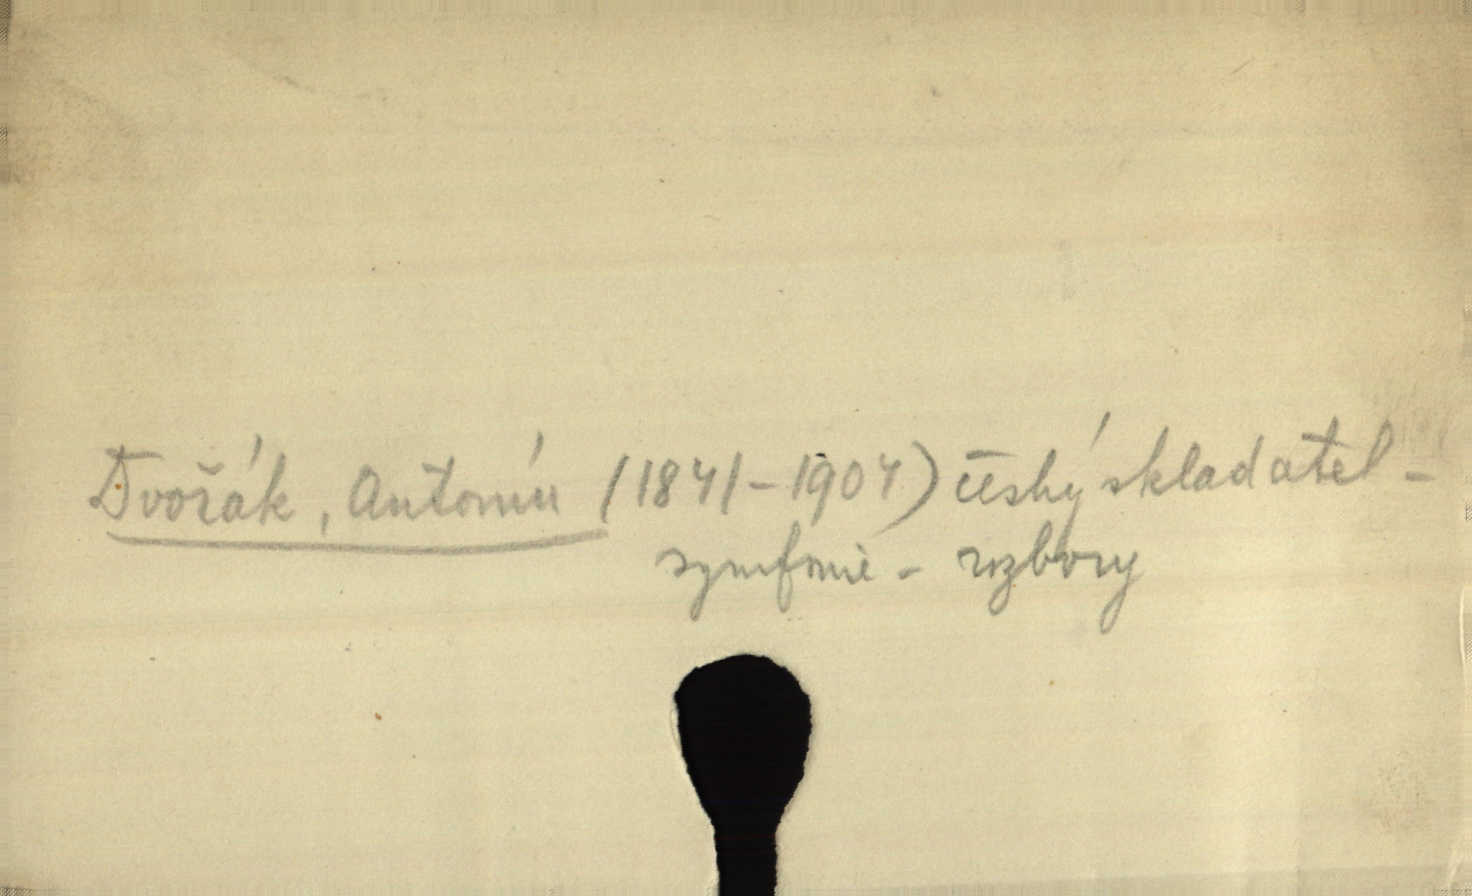 Dvořák, Antonín (1841-1904) český skladatel -
symfonie - rozbory